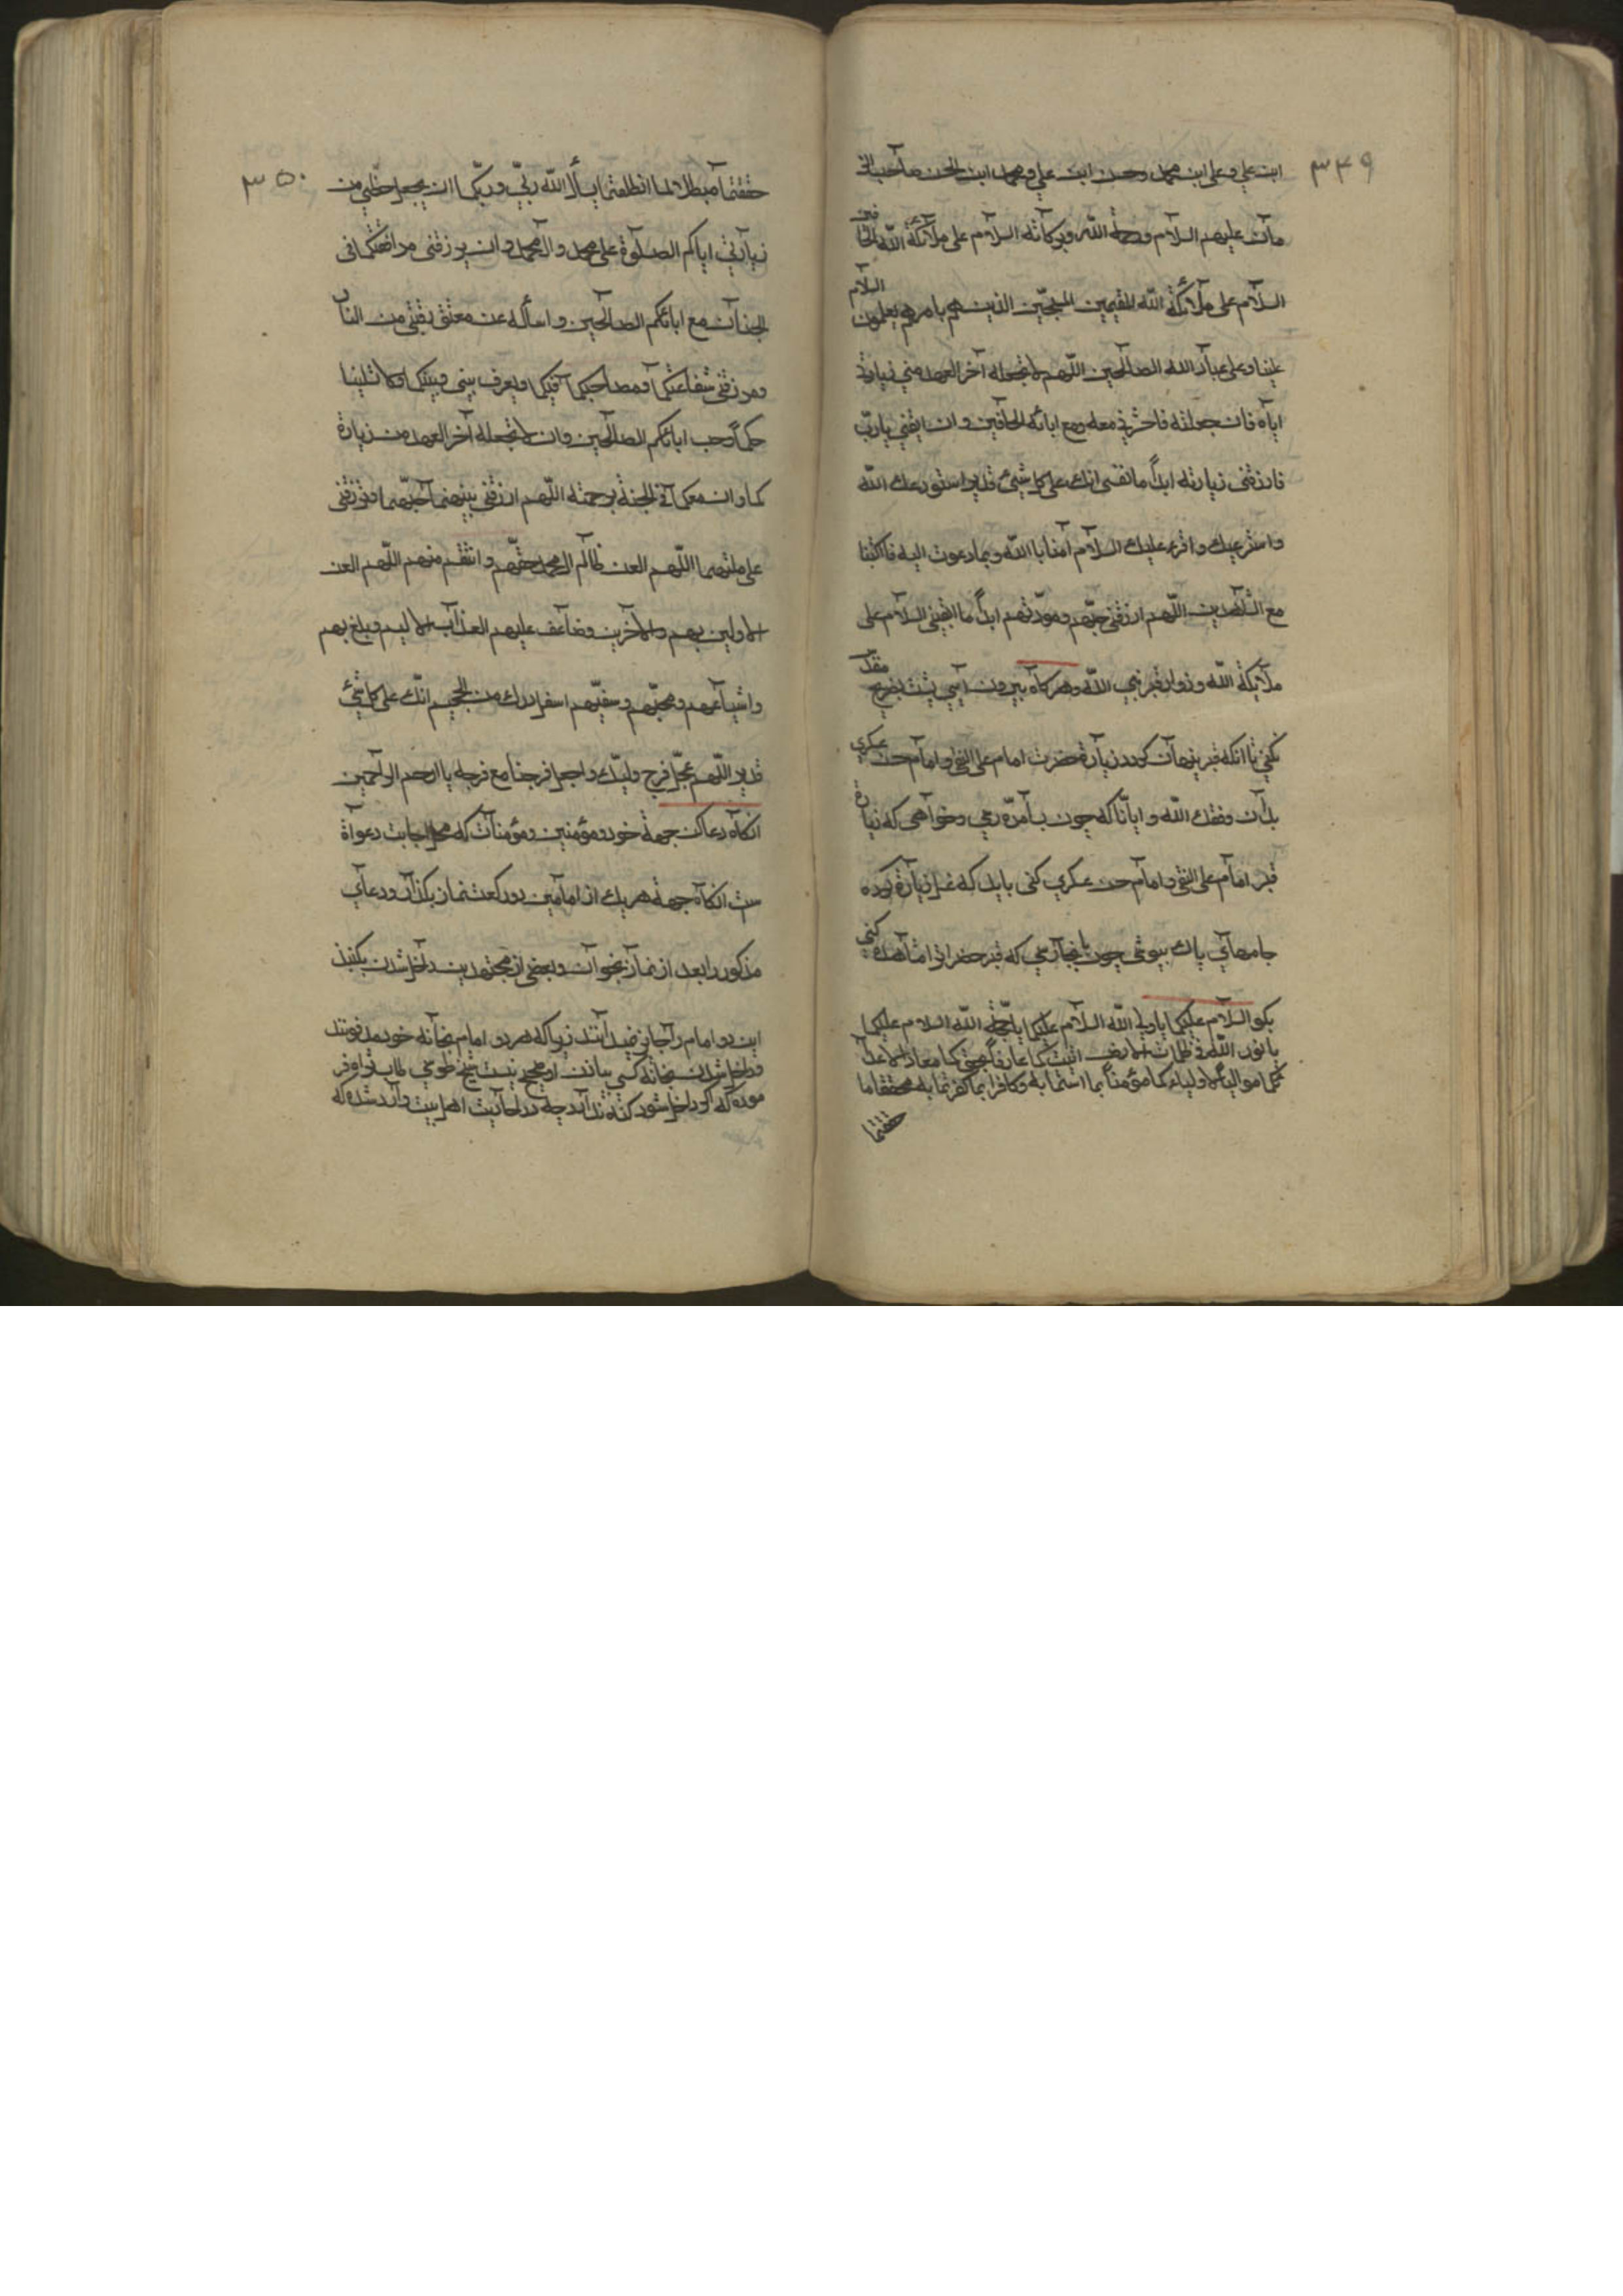 ۳۴۹
ابن علي و علی ابن محمد وحسن ابن علي و محمد ابن الحسن صاحب الز
مان عليهم السلام ورحمة الله وبركاته السلام على ملائكة الله الحا
فين
السلام على ملائكة الله المقيمين المسبحين الذين هم بامرهم يعملون السلام
علينا وعلى عباد الله الصالحين اللهم لا تجعله آخر العهد مني زيارة
اياه فان جعلته فاحشرني معه ومع ابائه وان ابقيتني يارب
فارزقني زيارته ابداً ما انك على كل شيئ قدير استودعك الله
واسترعيك واقرء عليك السلام امنا بالله وبما دعوت اليه فاكتبنا
مع الشاهدين اللهم ارزقني حبهم ومودتهم ابداً ما السلام على
ملايكة الله وزوار قبر نبي الله وهر كاه بيرون ايي پشت بضريح مقد
نكني تا انكه قبر پنهان كردد زيارة حضرت امام علی النقي و امام حسن عسكري
بدان وفقك الله و ايانا كه چون بسامره رسي وخواهي كه زيارة
قبر امام علی النقي و امام حسن عسكري كني بايد كه غسل زيارة كرده
جامهاي پاك بپوشي چون بانجا رسي كه قبر حضرات مشاهده كني
بكو السلام عليكما يا وليا الله السلام عليكما يا حجة الله السلام عليكما
يا نور الله في ظلمات الارض اتيتكما عارفاً بحقكما معاديا لاعدآ
ئكما مواليا لاوليائكما مؤمناً بما امنتما به وكافرا بما كفرتما به محققا ما
حققتما
۳۵۰
حققتما مبطلا لما ابطلتما يسأل الله ربي وربكما ان يجعل حظي من
زيارتي اياكم الصلوة على محمد وآل محمد وان يرزقني مرافقتكما في
الجنان مع ابائكم الصالحين و اسأله عن معتق رقبتي من النار
ومرزقني شفاعتكما ومصاحبتكما ويعرف بيني وبينكما ولا
حبكما وحب ابائكم الصالحين وان لا تجعله آخر العهد من زيارة
كما وان معكما في الجنة برحمته اللهم ارزقني حبهما وتوفني
على ملتهما اللهم العن ظالم آل محمد حقهم وانتقم منهم اللهم العن
الاولين بهم والآخرين وضاعف عليهم العذاب الاليم وبلغ بهم
واشياعهم ومحبهم اسفل درك من الجحيم انك على كل شيئ
قدير اللهم عجل فرج وليك واجعل فرجنا مع فرجه يا ارحم الراحمين
انكاه دعا كن جهة خود ومؤمنين ومؤمنات كه محل اجابت دعواة
ست انكاه جهة هر يك از امامين دو ركعت نماز بكذار و دعاي
مذكور را بعد از نماز بخوان و بعضي از مجتهدين داخل شدن
اين دو امام را جايز نميدانند زيرا كه هر دو امام بخانه خود مدفونند
وداخل شدن بخانه كسي بي اذن او صحيح نيست شيخ طوسي
موده كه اكر داخل شود كناه ندارد چه در احاديث اهل بيت وارد شده كه